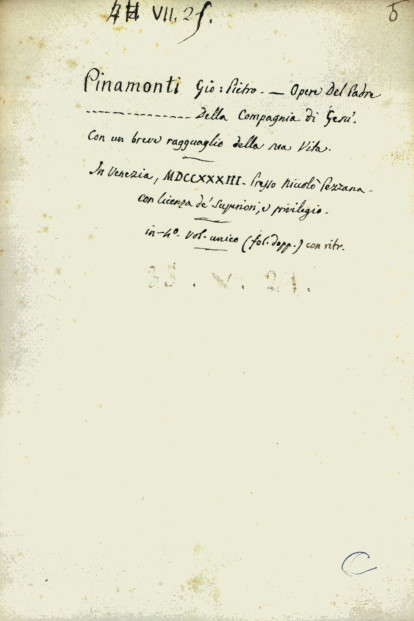 VII. 25.
Pinamonti Gio: Pietro. — Opere Del Padre
--------------- Della Compagnia di Gesù.
Con un breve ragguaglio della sua Vita.
In Venezia, MDCCXXXIII. Presso Niccolò Pezzana.
con licenza de' Superiori, e privilegio.
in-4º. Vol. unico (fol. dopp.) con ritr.
33. V. 21.
C